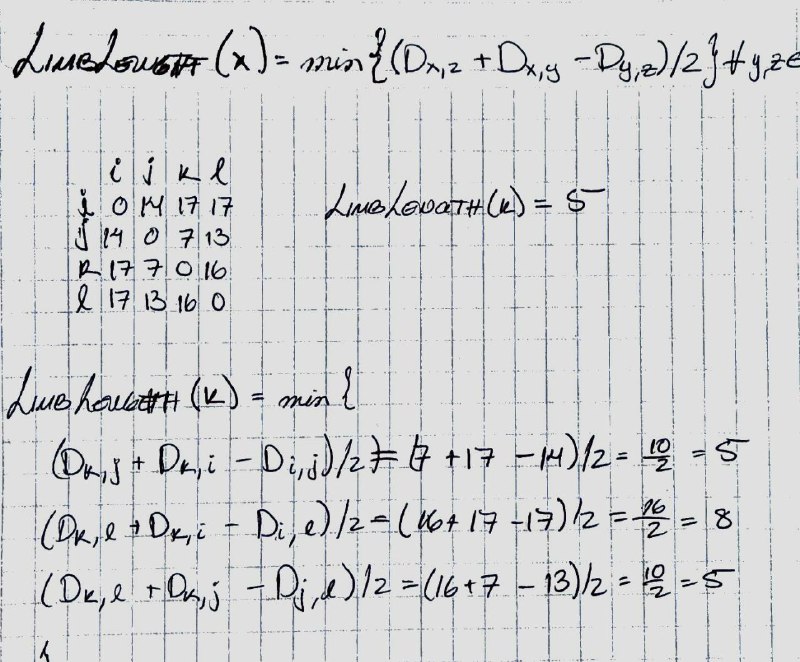 LimbLength(x) = min{(Dx,z + Dx,y - Dy,z)/2} ∀ y,z∈
i j k l
i 0 14 17 17
j 14 0 7 13
k 17 7 0 16
l 17 13 16 0
LimbLength(k) = 5
LimbLength(k) = min {
(Dk,j + Dk,i - Di,j)/2 = (7 + 17 - 14)/2 = 10/2 = 5
(Dk,l + Dk,i - Di,l)/2 = (16 + 17 - 17)/2 = 16/2 = 8
(Dk,l + Dk,j - Dj,l)/2 = (16 + 7 - 13)/2 = 10/2 = 5
}